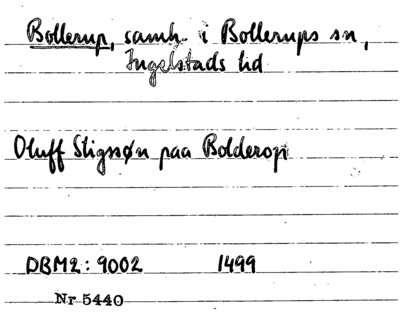 Bollerup, samh. i Bollerups sn,
Ingelstads hd
Oluff Stigssøn paa Bolderop
DBM2: 9002 1499
Nr 5440